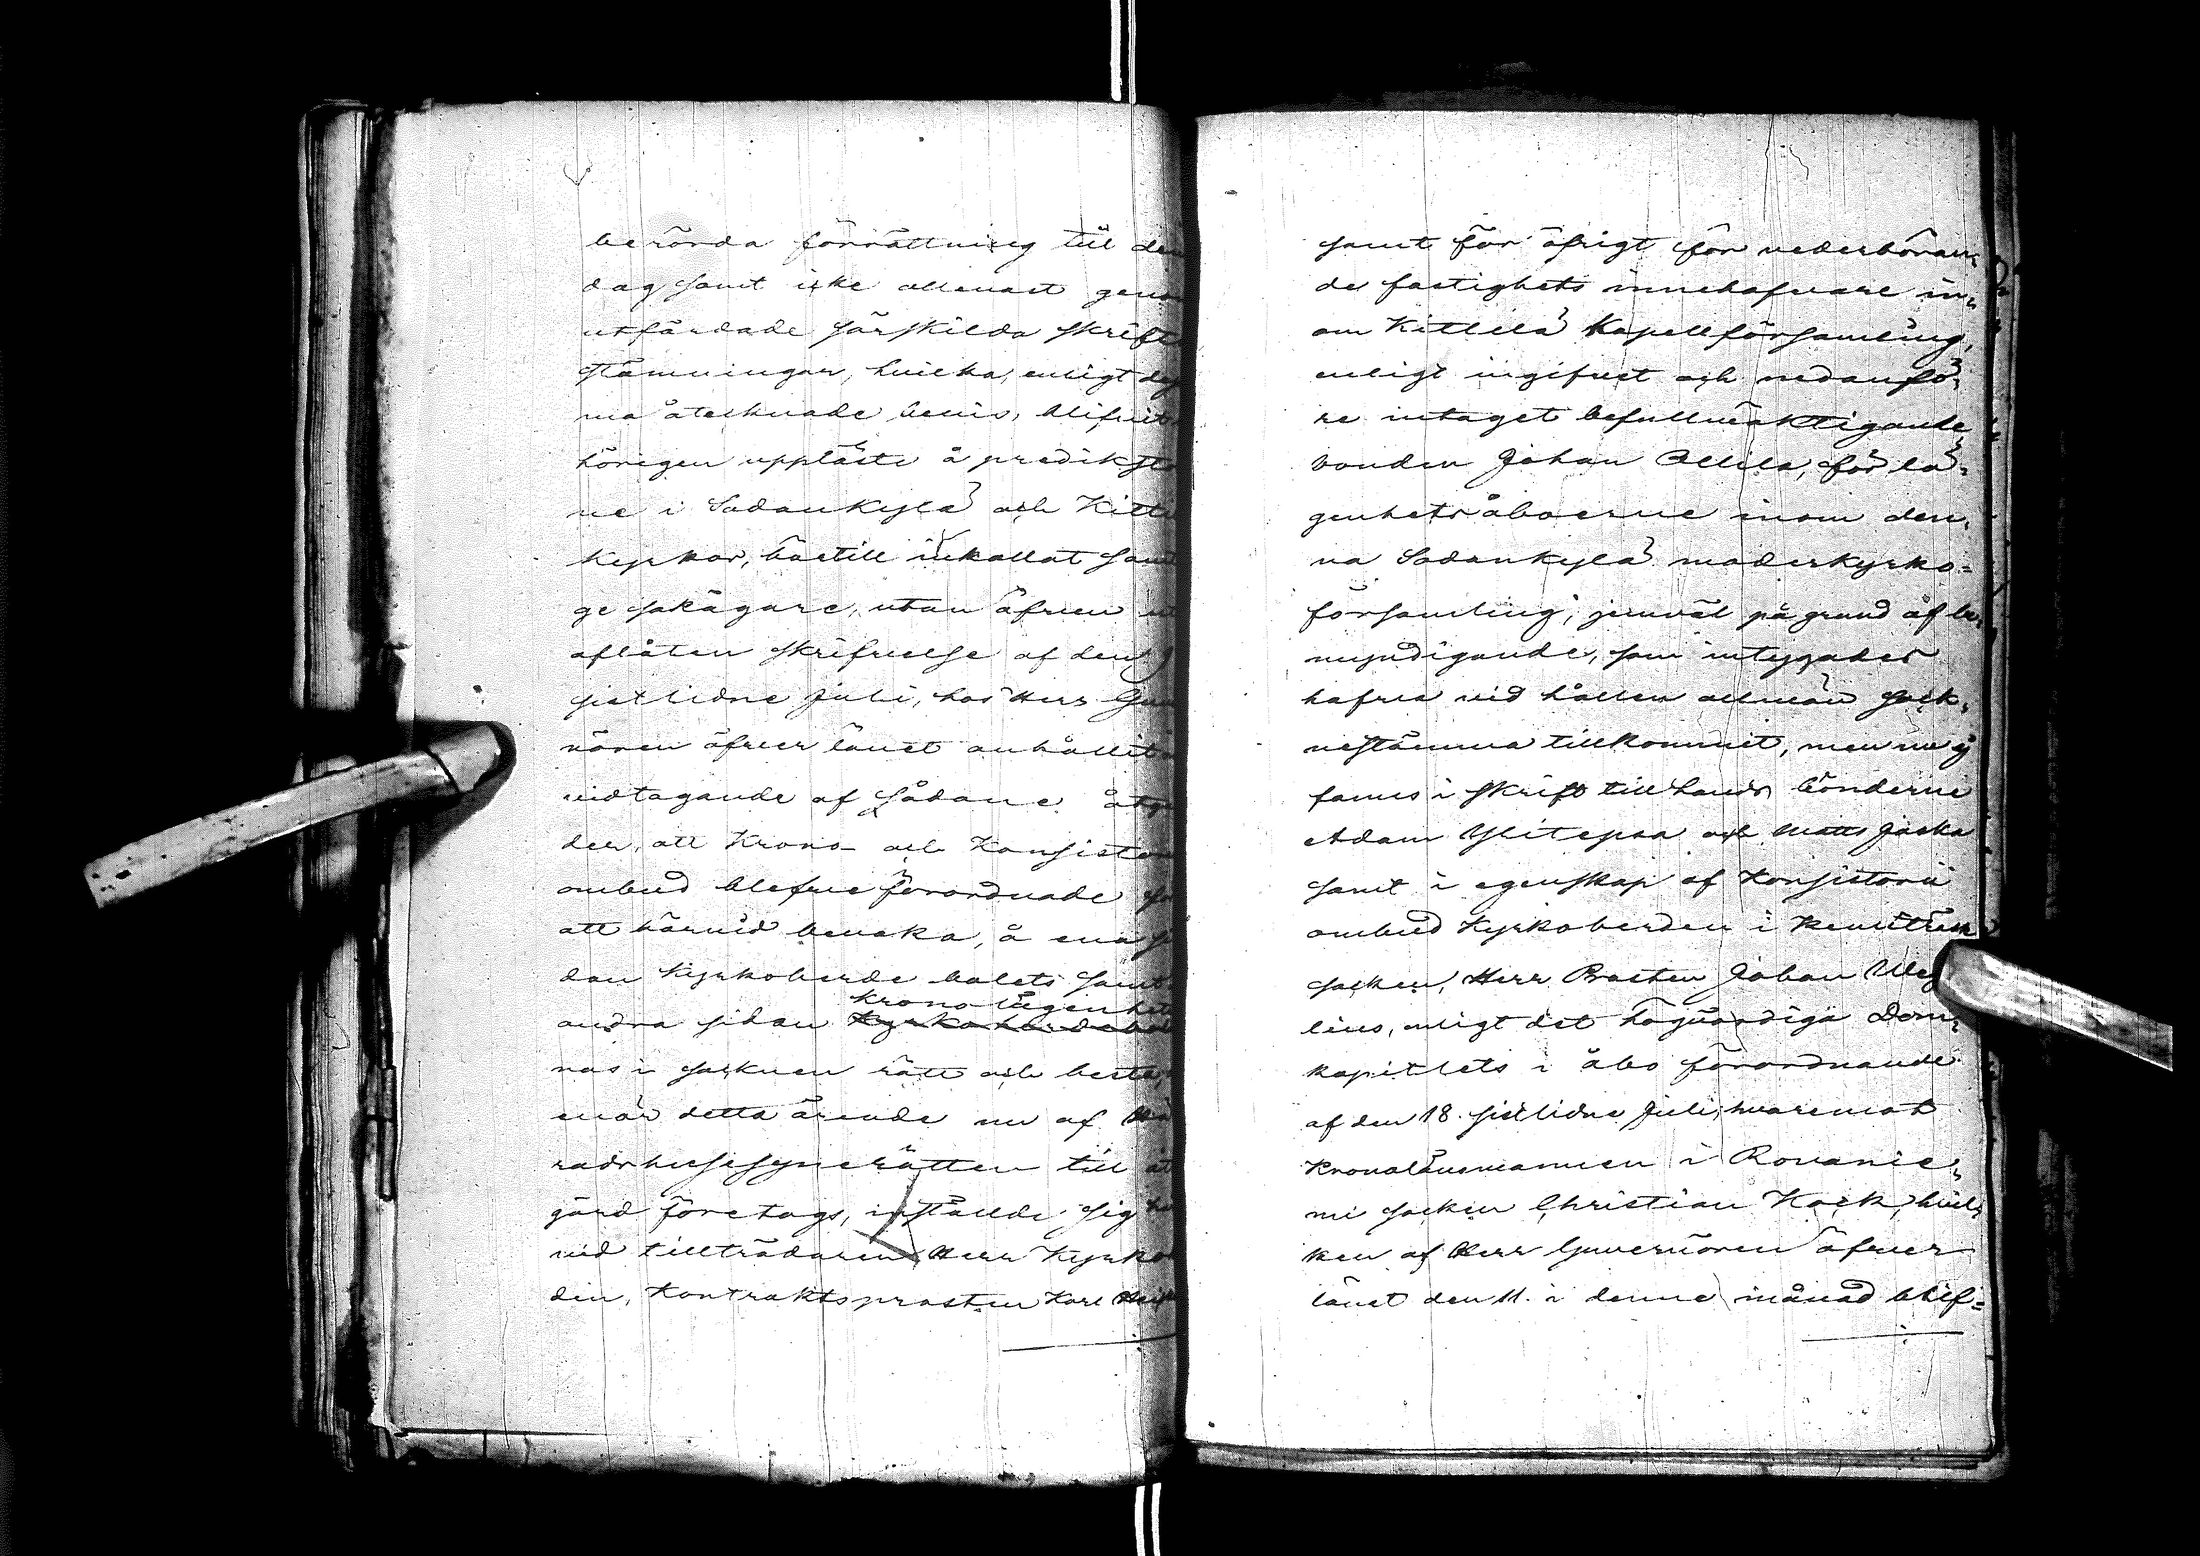 berörda förrättning till den
dag samt icke allenast geno
utfärdade särskilda skrift
stämningar, hvilka, enligt de
ma åtecknade bevis, blifvit
hörigen uppläste å prediksto
ne i Sodankylä och Kitti
kyrkor, härtill inkallat samt
ge sakägare, utan äfven
aflåten skrifvelse af den
sistlidne Juli, hos Herr Guv
nören öfver länet anhållit
vidtagande af sådane åtg
der, att Krono- och Konsisto
ombud blefve förordnade
att härvid bevaka, å ena
dan Kyrkoherde bolets samt
krono lägenhet
andra sidan kyrkoherdebol
nas i socknen rätt och bästa,
enär detta ärende nu af Hä
radshusesynerätten till åt
gärd företogs, inställde sig
vid tillträdaren Herr Kyrko
din, Kontraktsprosten Karl
samt för öfrigt för vederböran-
de fastighets innehafvare in-
om Kittilä Kapellförsamling,
enligt ingifvet och nedanfö-
re intaget befullmäktigande,
bonden Johan Allila, för lä-
genhetsåboerne inom den-
na Sodankylä moderkyrko-
församling, jemväl på grund af be-
myndigande, som intygades
hafva vid hållen allmän sock-
nestämma tillkommit, men nu ej
fanns i skrift till hands bönderne
Adam Ylitepsa och Matts Jaska
samt i egenskap af Konsistorii
ombud Kyrkoherden i Kemiträsk
socken, Herr Prosten Johan
lius, enligt det högvördiga Dom-
kapitlets i Åbo förordnande
af den 18. sistlidne Juli, hvaremot
Kronolänsmannen i Rovanie-
mi socken Christian Hock, hvil-
ken af Herr Guvernören öfver
länet den 11. i denne månad blif-